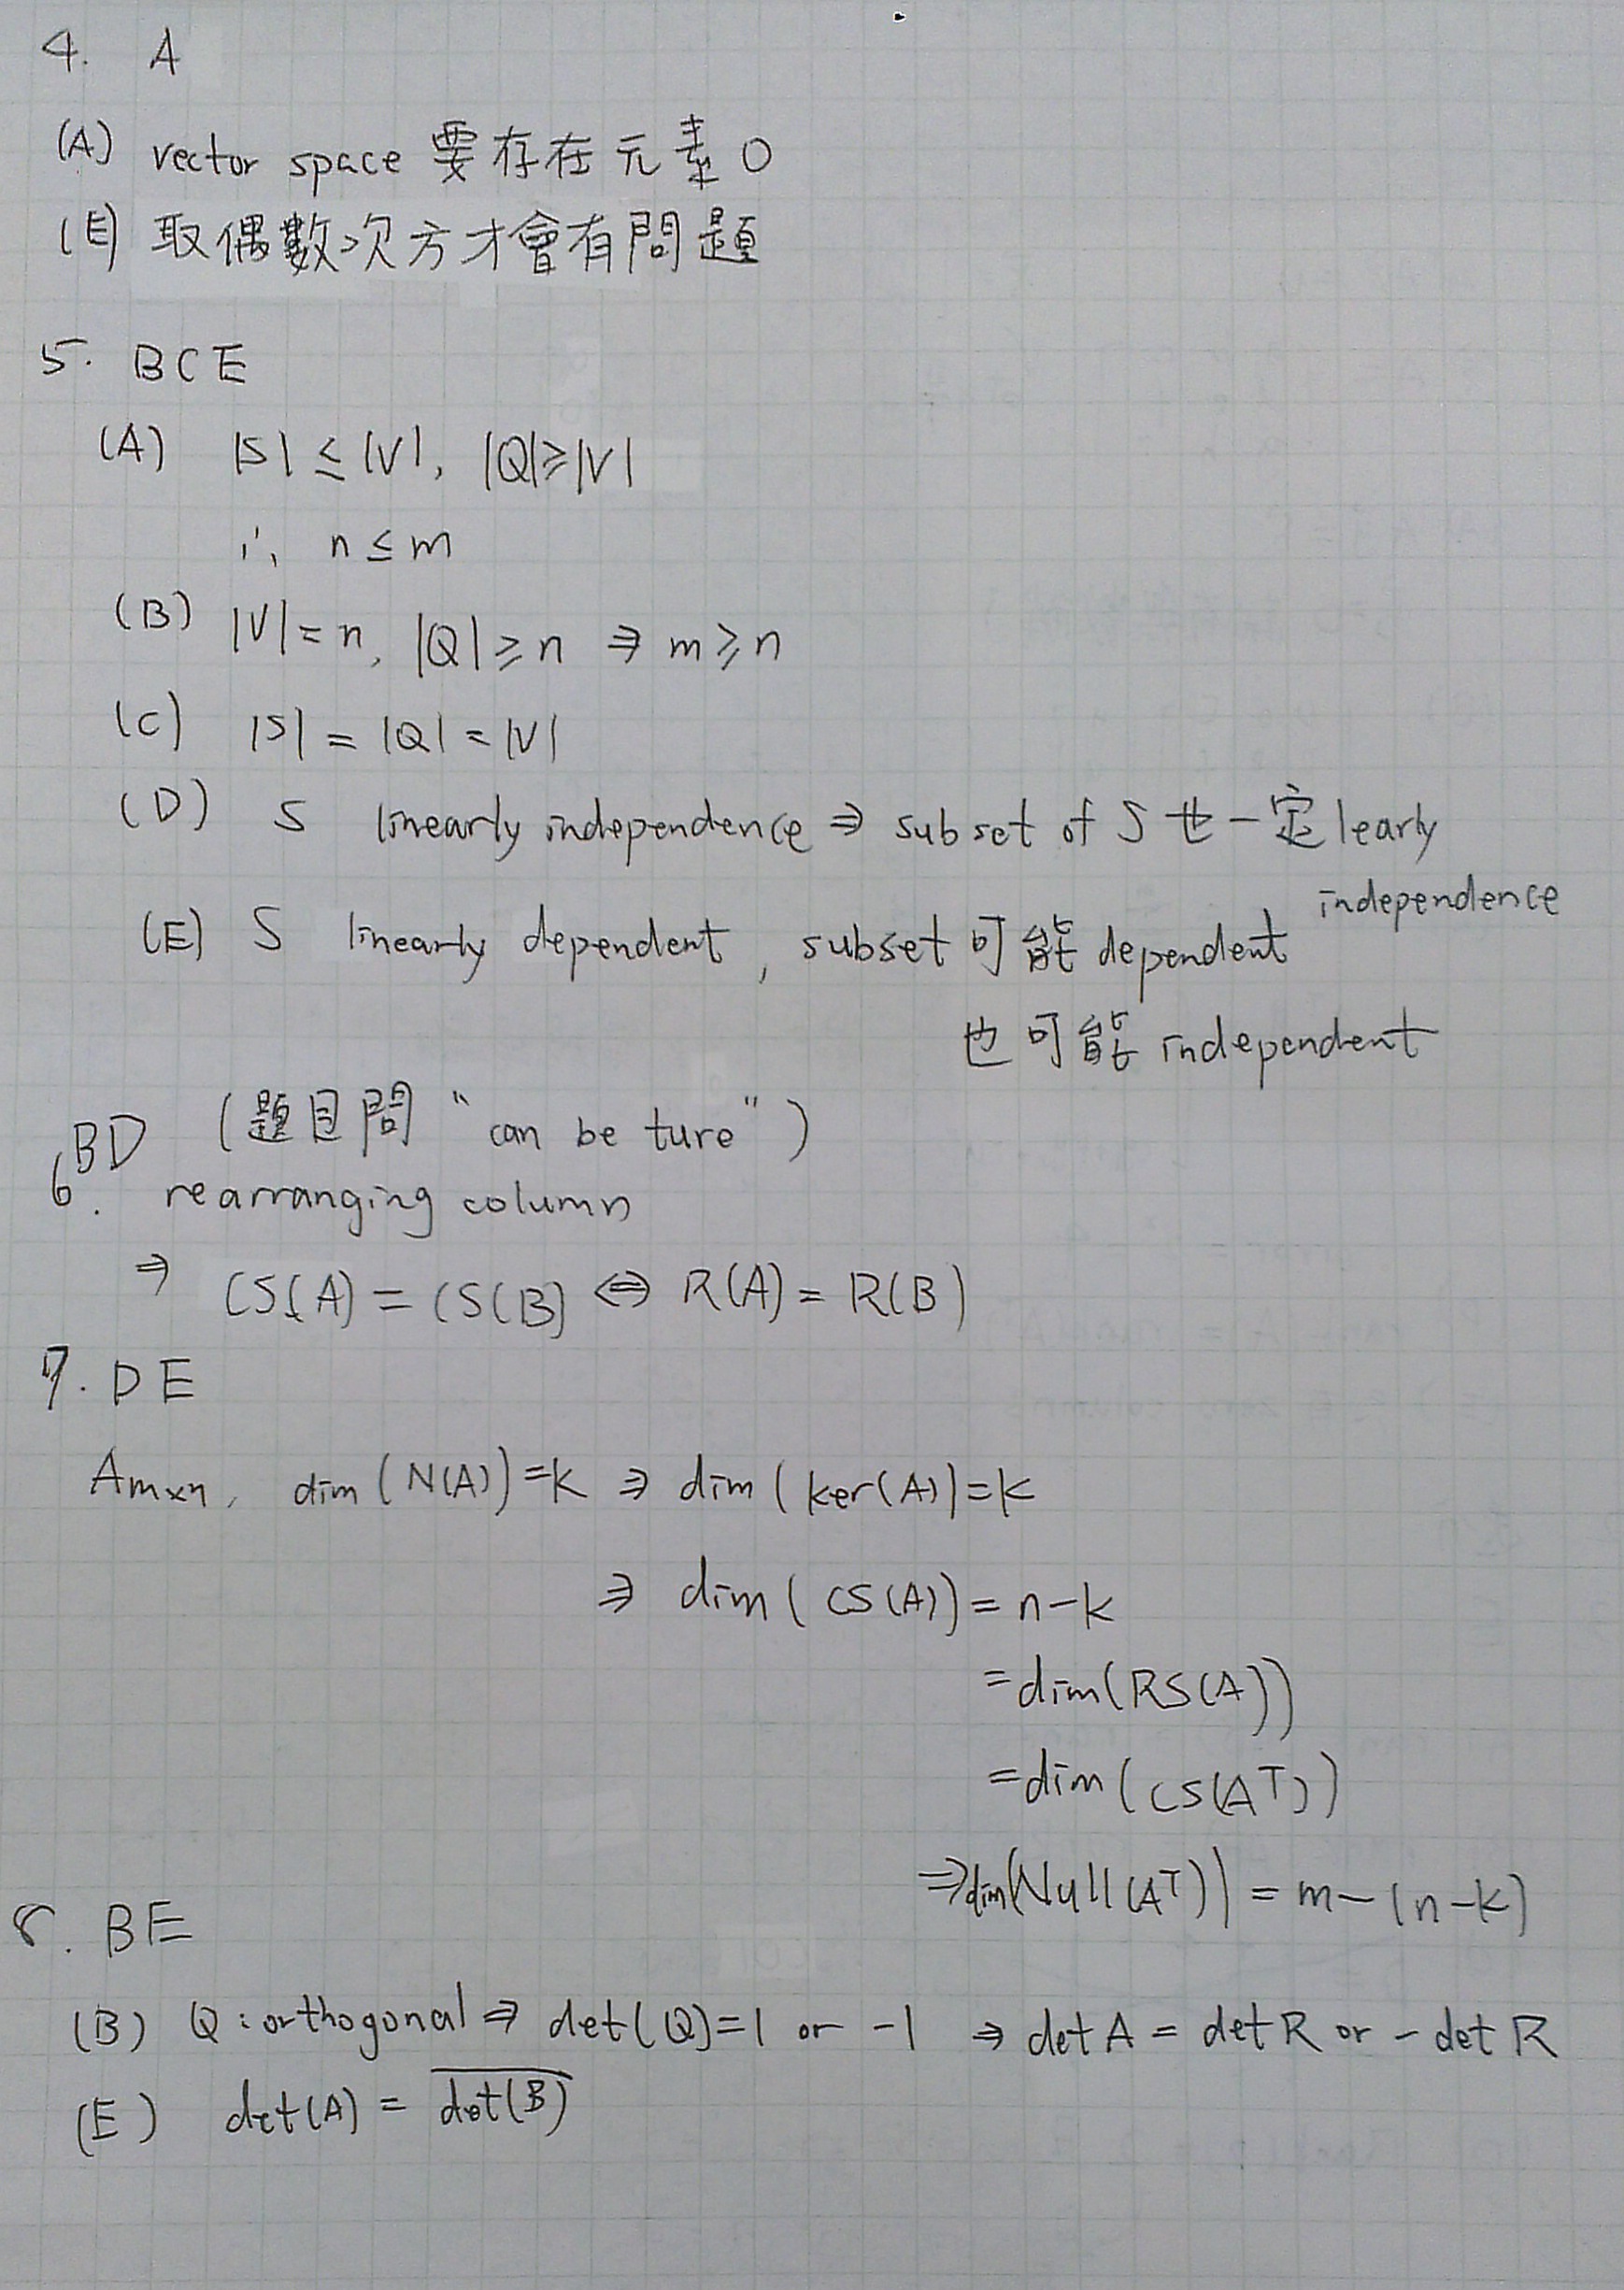 4. A
(A) vector space 要存在元素 0
(E) 取偶數次方才會有問題
5. BCE
(A) |S| ≤ |V|, |Q| ≥ |V|
∴ n ≤ m
(B) |V| = n, |Q| ≥ n ⇒ m ≥ n
(C) |S| = |Q| = |V|
(D) S linearly independence ⇒ subset of S 也一定 learly
independence
(E) S linearly dependent, subset 可能 dependent
也可能 independent
6. BD (題目問 "can be ture")
rearranging column
⇒ CS(A) = CS(B) ⇔ R(A) = R(B)
7. DE
Am×n, dim(N(A)) = k ⇒ dim(ker(A)) = k
⇒ dim(CS(A)) = n-k
= dim(RS(A))
= dim(CS(Aᵀ))
⇒ dim(Null(Aᵀ)) = m-(n-k)
8. BE
(B) Q: orthogonal ⇒ det(Q) = 1 or -1 ⇒ det A = det R or - det R
(E) det(A) = \overline{det(B)}